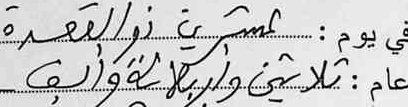 في يوم : عشرين ذو القعدة
عام : ثلاثين وأربعمائة وألف